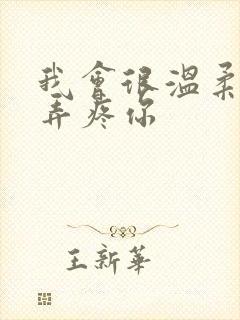 我會很溫柔
弄疼你
王新華